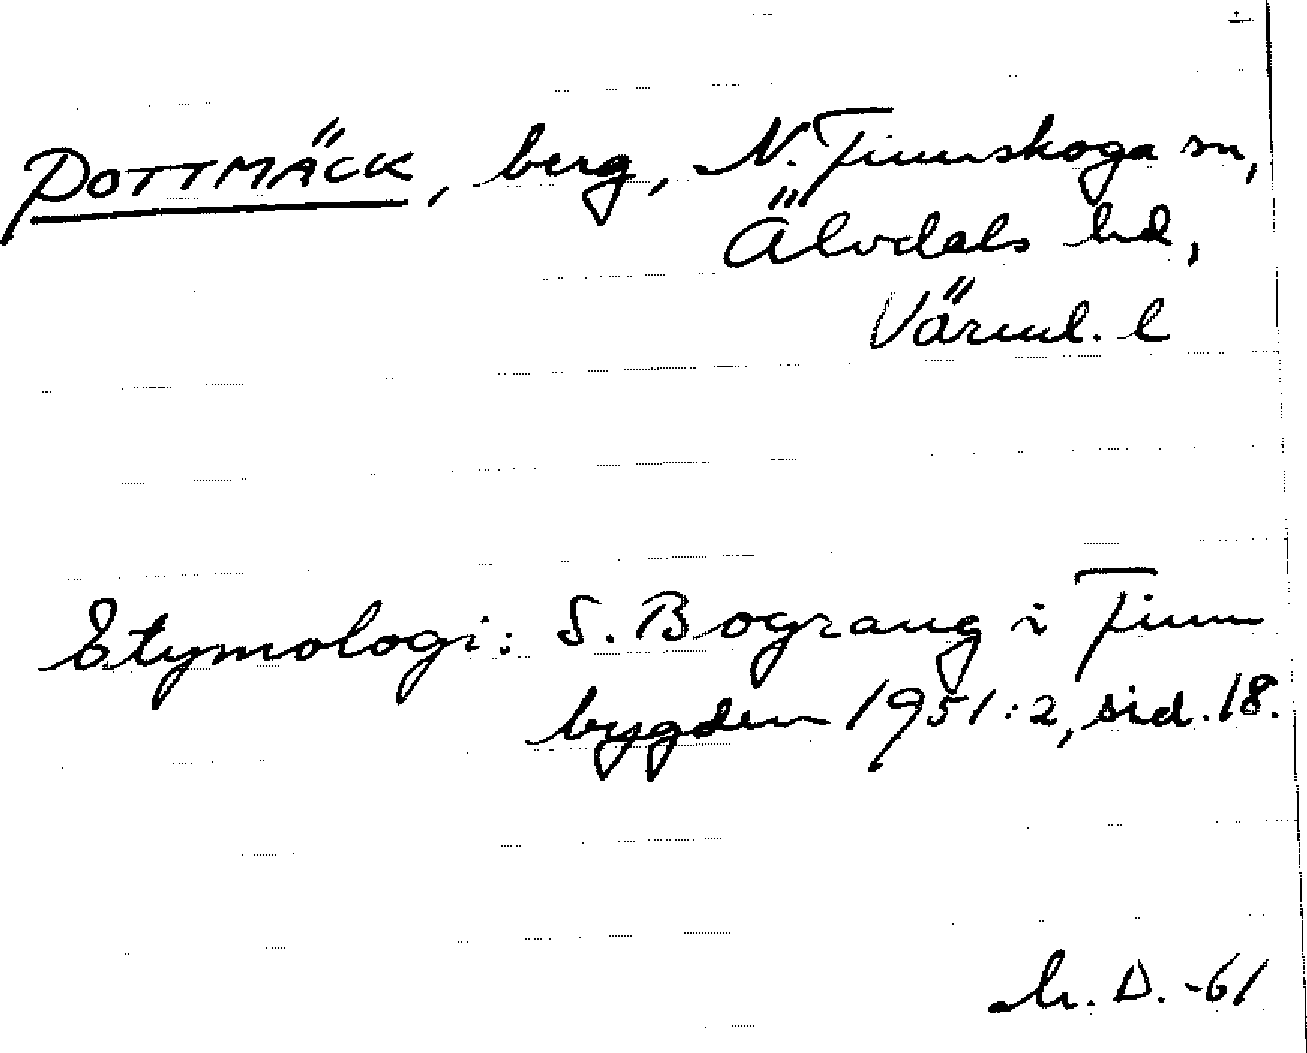 POTTMÄCK, berg, N. Finnskoga sn,
Älvdals hd,
Värml. l
Etymologi: S. Bograng i Finn
bygden 1951:2, sid. 18.
M. D. -61